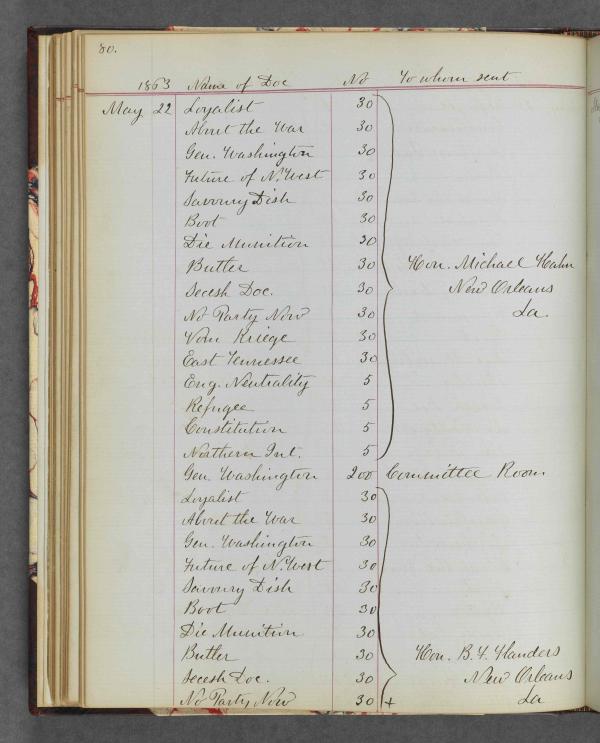 80.
1863 Name of Doc No To whom sent
May 22 Loyalist 30
About the War 30
Gen. Washington 30
Future of N. West 30
Savoury Dish 30
Boot 30
Die Munition 30
Butler 30 Hon. Michael Hahn
Secesh Doc. 30 New Orleans
No Party Now 30 La.
Vom Kriege 30
East Tennessee 30
Eng. Neutrality 5
Refugee 5
Constitution 5
Northern Int. 5
Gen Washington 200 Committee Room
Loyalist 30
About the War 30
Gen. Washington 30
Future of N. West 30
Savoury Dish 30
Boot 30
Die Munition 30
Butler 30 Hon. B. F. Flanders
Secesh Doc. 30 New Orleans
No Party Now 30 + La